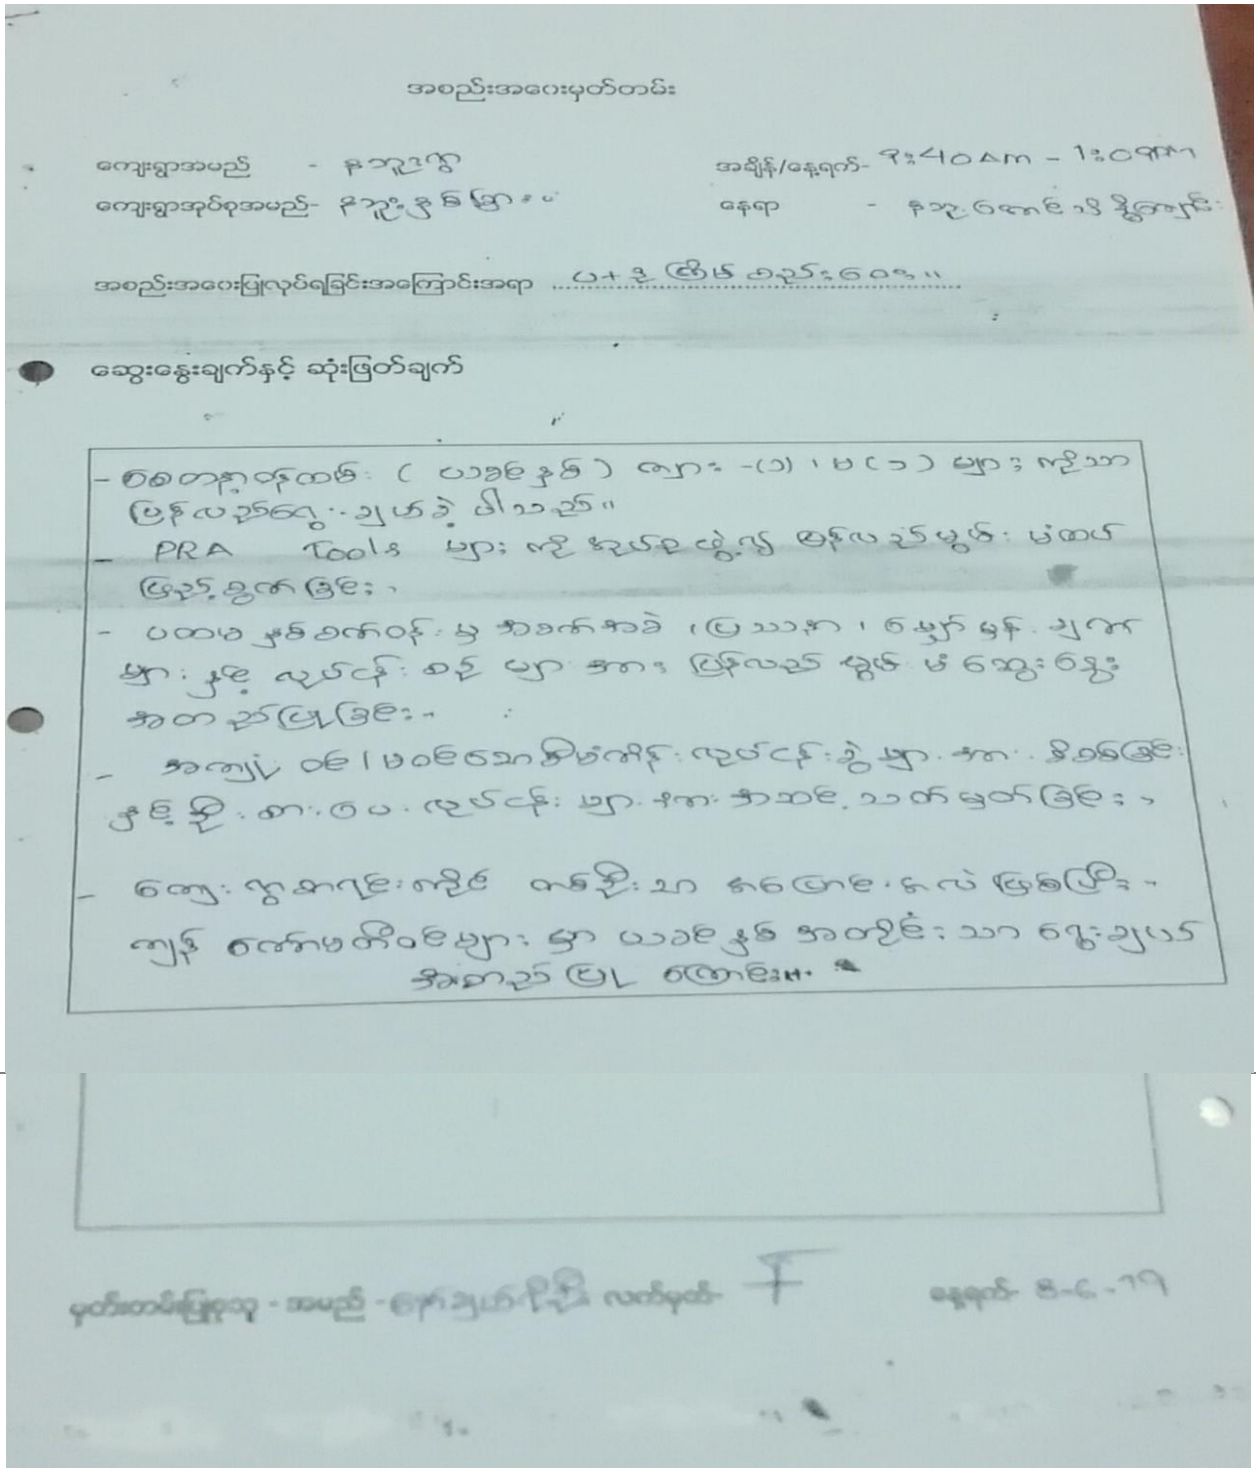 အစည်းအဝေးမှတ်တမ်း
ကျေးရွာအမည် - နဘူးကွ
အချိန်/နေ့ရက်- 9:40 Am - 1:0 pm
ကျေးရွာအုပ်စုအမည်-
နေရာ -
အစည်းအဝေးပြုလုပ်ရခြင်းအကြောင်းအရာ ပ+ဒု ကြိမ် စည်းဝေး။
ဆွေးနွေးချက်နှင့် ဆုံးဖြတ်ချက်
- စေတနာ့ဝန်ထမ်း ( ယခင်နှစ် ) ကျား -(၁)၊ မ(၁) များ ကိုသာ
ပြန်လည်ရွေးချယ်ခဲ့ ပါသည်။
- PRA Tools များ ကို အုပ်စုဖွဲ့၍ ပြန်လည်မွမ်းမံထပ်
ဖြည့်စွက်ခြင်း၊
- ပထမ နှစ်စက်ဝန်းမှ အခက်အခဲ ၊ ပြဿနာ ၊ မျှော်မှန်းချက်
များ နှင့် လုပ်ငန်းစဉ် များအား ပြန်လည် မွမ်းမံ ဆွေးနွေး
အတည်ပြုခြင်း။
- အကျုံးဝင်/မဝင်သော စီမံကိန်းလုပ်ငန်းခွဲများအား စိစစ်ခြင်း
နှင့် ဦးစားပေးလုပ်ငန်းများအား အဆင့်သတ်မှတ်ခြင်း၊
- ကျေးရွာစာရင်းကိုင် တစ်ဦးသာ အပြောင်းအလဲ ဖြစ်ပြီး၊
ကျန် ကော်မတီဝင်များ မှာ ယခင်နှစ် အတိုင်းသာ ရွေးချယ်
အတည်ပြု ကြောင်း။
မှတ်တမ်းပြုစုသူ - အမည် - လက်မှတ်- နေ့ရက်- 8-6-19